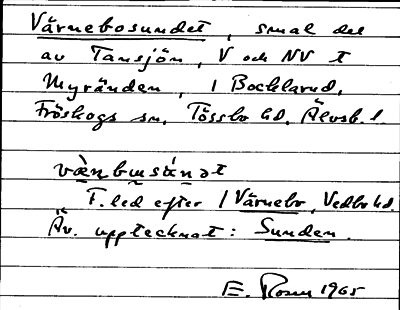 Värnebosundet, smal del
av Tansjön, V och NV t
Myränden, 1 Bocklarud,
Fröskogs sn, Tössbo hd, Älvsb. l.
væ̀ṇbusúṇət
F. led efter 1 Värnebo, Vedbo hd.
Äv. upptecknat: Sunden.
E. Rosén 1965